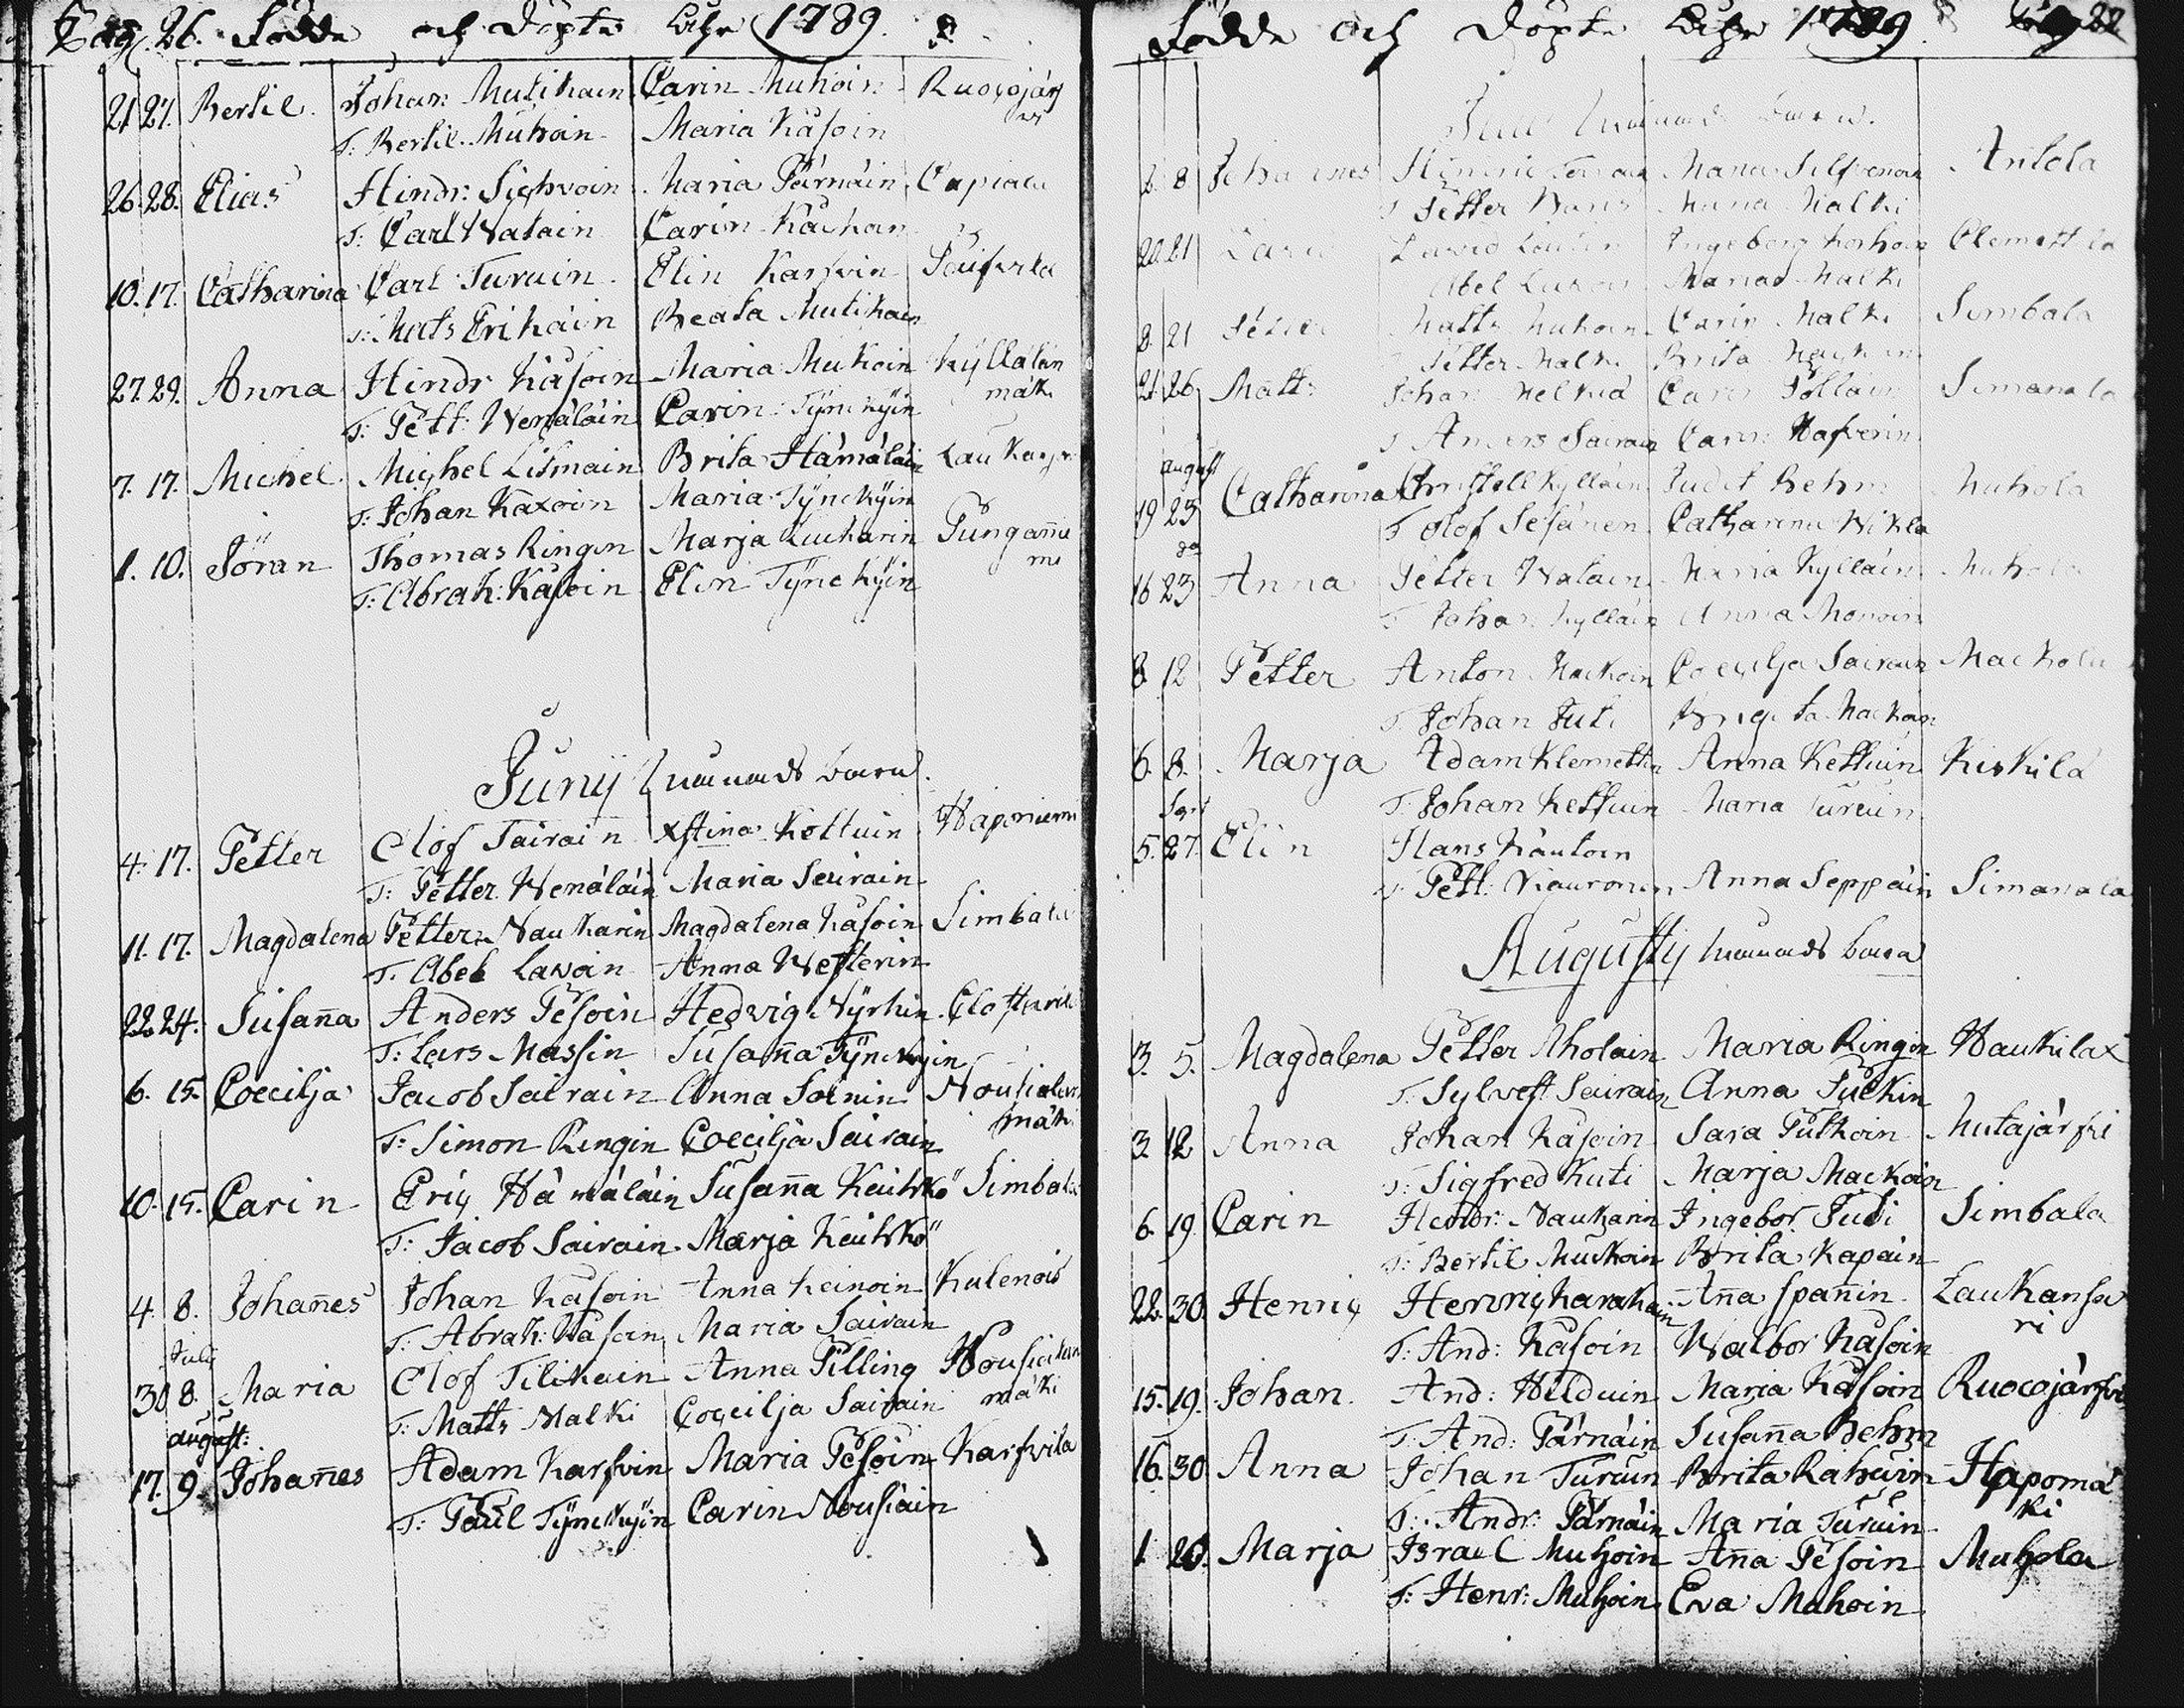 Pag. 26. Födde och Döpte Åhr 1789.
21 27. Bertil. Johan Mutikain Carin Muhoin Ruocojärf
T: Bertil Muhoin Maria Käsoin wi
26. 28. Elias Hindr: Sighvoin Maria Pärnäin Capiala
T: Carl Natain Carin Kaikoin
10. 17. Catharina Carl Turuin Elin Karfvin Päifvilä
T: Mats Erikäin Beata Mutikain
27. 29. Anna Hindr Käsoin Maria Mukoin Kyllälän
T: Pett: Wenäläin Carin Tÿnckÿin mäki
7. 17. Michel. Mighel Litmain Brita Hämäläin
T: Johan Kaxoin Maria Tÿnckÿin
1. 10. Jöran Thomas Ringin Marja Luukarin Pungañie
T: Abrah: Käsoin Elin Tÿnckÿin mi
Junij månads barn.
4. 17. Petter Olof Sairain Xstina Kottuin Haponiemi
T: Petter Wenäläin Maria Sairain
11. 17. Magdalena Petter Naukarin Magdalena Käsoin Simbala
T. Abel Lavoin Anna Westerin
22 24. Susaña Anders Pesoin Hedvig Nÿrhin
T: Lars Massin Susaña Tÿnckÿin
6. 15. Coecilja Jacob Sairain Anna Soinin Nousialan
T: Simon Ringin Coecilja Sairain mäki
10. 15. Carin Eriq Hämäläin Susaña Keitskö Simbala
T: Jacob Sairain Marja Keitskö
4. 8. Johañes Johan Käsoin Anna Keinoin Kulenois
T. Abrah: Käsoin Maria Sairain
July
30 8. Maria Olof Tilikain Anna Pilling Nousialan
T: Matts Malki Coecilja Sairain mäki
august:
17. 9. Johañes Adam Karfvin Maria Pesoin Karfvila
T: Paul Tÿnckÿin Carin Nousiain
Födde och Döpte Åhr 1789.
Julii månads barn.
8 Johannes Hinric Maria Silfvenoin Antola
T Petter Anna Malki
20. 21 David Ingeborg Clemettila
Abel Lavoin Maria Malki
8. 21 Petter Matts Muhoin Carin Malki Simbala
T Petter Malki Brita
21. 26 Matt: Johan Carin Pölläin Simanala
T Anders Sairain Carin Hafverin
august
19 23 Catharina Christell Kylläin Judit Behm Muhola
T Olof Sesänen Catharina Nikla
do
16 23 Anna Petter Natain Maria Kylläin Muhola
T Johan Kylläin Anna Monoin
8 12 Petter Anton Mackoin Coecilja Sairain Mackola
T. Johan Juti Brigeta Mackoin
6. 8. Marja Adam Klemettin Anna Kettuin Kiskilä
T: Johan Kettuin Maria Turuin
Sept
5. 27. Elin Hans Käutoin
T. Pett: Kiauronen Anna Seppäin Simanala
Augustij månads barn
3. 5. Magdalena Petter Aholain Maria Ringin Haukilax
T. Sylvest Sairain Anna Puckin
3. 12 Anna Johan Käsoin Sara Putkoin Mutajärfvi
T: Sigfred Kuti Marja Mackoin
6. 19. Carin Hendr: Naukarin Ingebor Juti Simbala
T: Bertil Muckoin Brita Kapain
22. 30. Henriq Henriq Karakain Aña Spañin. Laukansa
T: And: Käsoin Walbor Käsoin ri
15. 19. Johan. And: Hilduin Maria Käsoin Ruocojärfvi
T: And: Pärnäin Susaña Behm
16. 30. Anna Johan Turuin Brita Rahuin Hapomä
T: Andr: Pärnäin Maria Turuin ki
1. 20. Marja Israel Muhoin Aña Pesoin Muhola
T: Henr: Muhoin Eva Muhoin